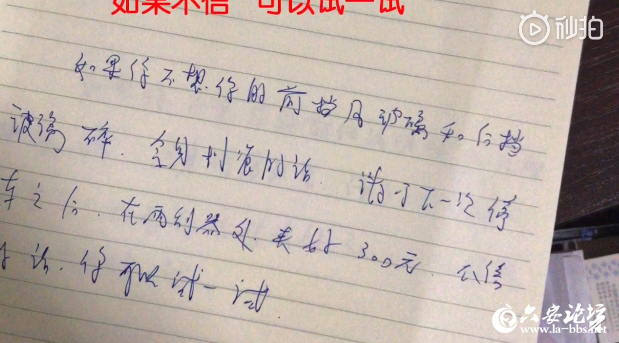 如果不信 可以试一试
秒拍
如果你不想你的前挡风玻璃和后挡
玻璃碎.全身划痕的话.请于下一次停
车之后.在雨刮器处.夹好300元.不信
话.你可以试一试
六安论坛
www.la-bbs.net